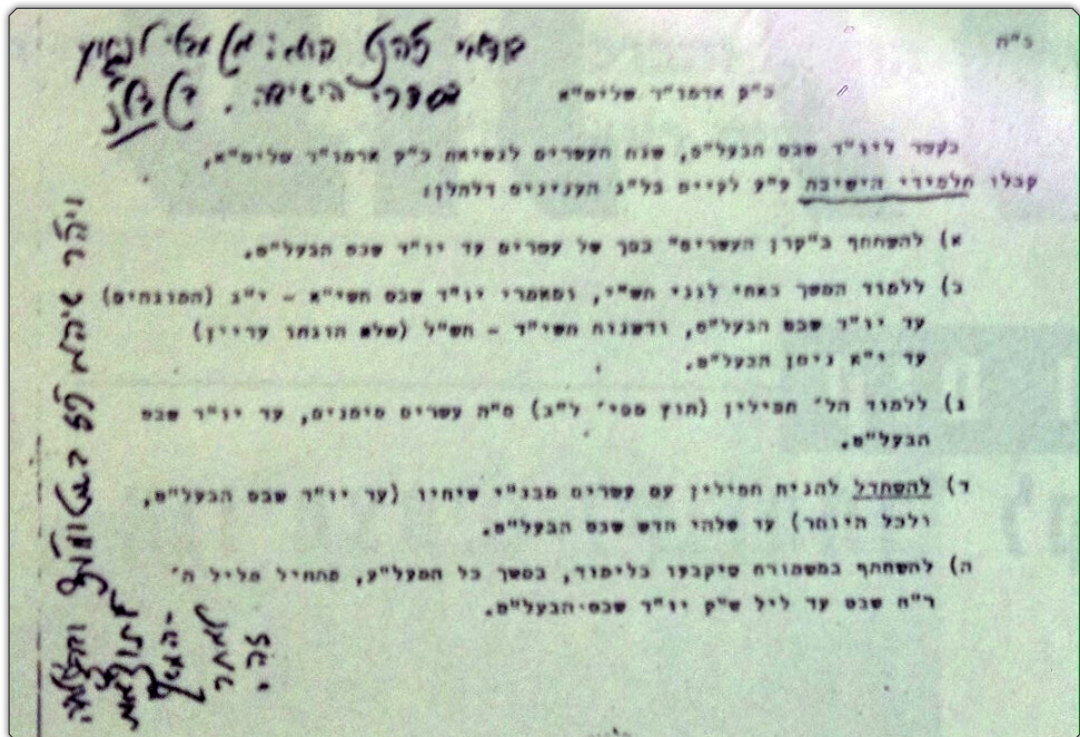 ב"ה
כ"ק אדמו"ר שליט"א
בקשר ליו"ד שבט הבעל"ט, שנת העשרים לנשיאת כ"ק אדמו"ר שליט"א,
קבלו תלמידי הישיבה ע"ע לקיים בל"נ הענינים דלהלן:
א) להשתתף ב"קרן העשרים" בסך של עשרים עד יו"ד שבט הבעל"ט.
ב) ללמוד המשך באתי לגני תש"י, ומאמרי יו"ד שבט תשי"א – י"ג (המוגהים)
עד יו"ד שבט הבעל"ט, ודשנות תשי"ד – תש"ל (שלא הוגהו עדיין)
עד י"א ניסן הבעל"ט.
ג) ללמוד הל' תפילין (חוץ מסי' ל"ב) ס"ה עשרים סימנים, עד יו"ד שבט
הבעל"ט.
ד) להשתדל להניח תפילין עם עשרים מבנ"י שיחיו (עד יו"ד שבט הבעל"ט,
ולכל היותר) עד שלהי חדש שבט הבעל"ט.
ה) להשתתף במשמורת שיקבעו בלימוד, במשך כל המעל"ע, מתחיל מליל ה'
ר"ח שבט עד ליל ש"ק יו"ד שבט הבעל"ט.
הישיבה.